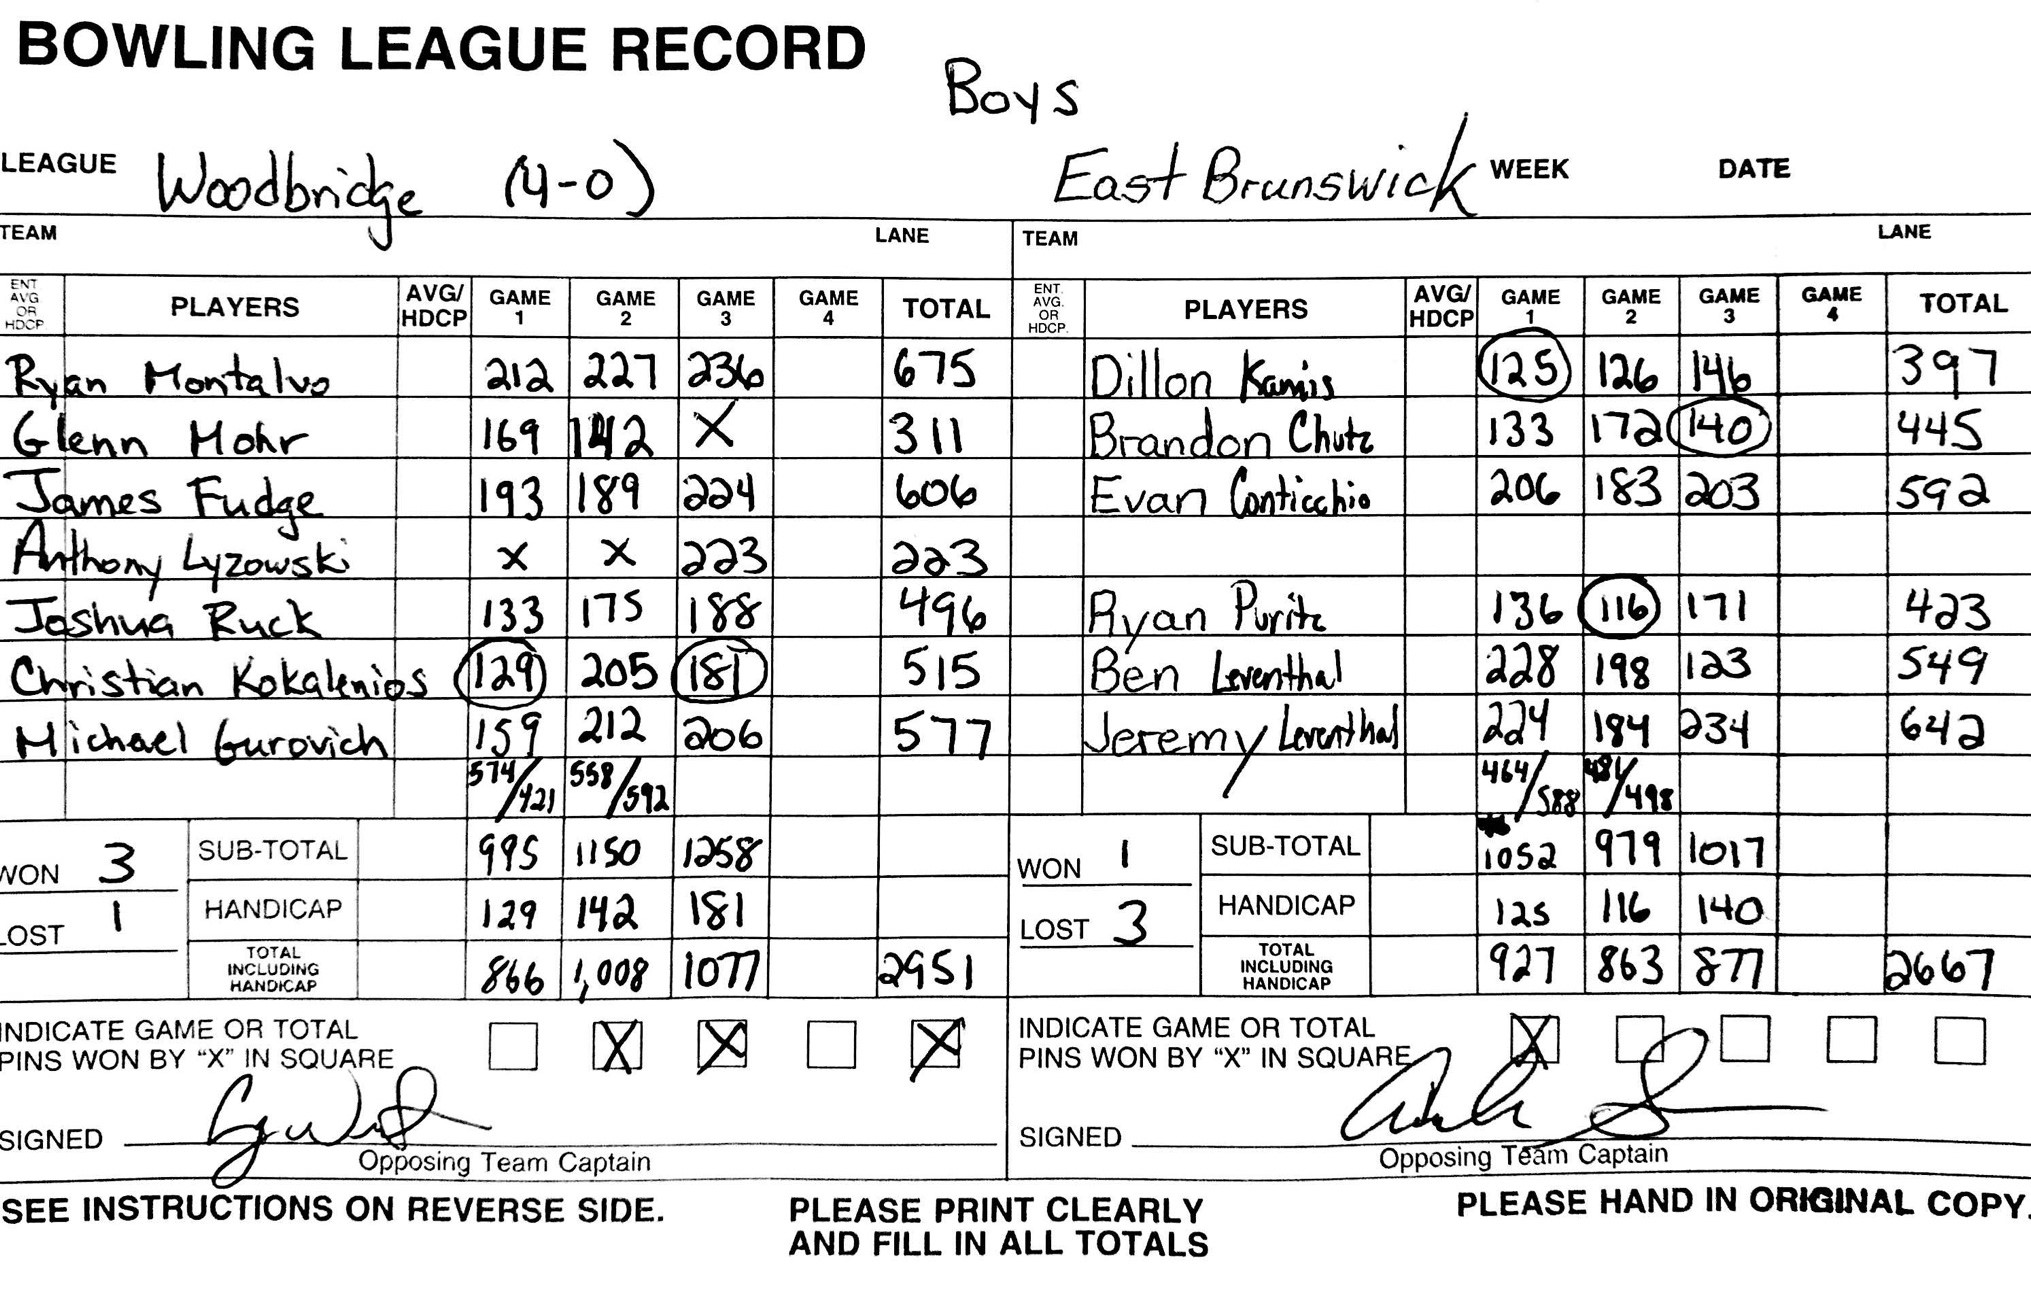 BOWLING LEAGUE RECORD
Boys
LEAGUE Woodbridge (4-0) East Brunswick WEEK DATE
TEAM LANE TEAM LANE
ENT AVG OR HDCP PLAYERS AVG/ HDCP GAME 1 GAME 2 GAME 3 GAME 4 TOTAL ENT. AVG. OR HDCP. PLAYERS AVG/ HDCP GAME 1 GAME 2 GAME 3 GAME 4 TOTAL
Ryan Montalvo 212 227 236 675 Dillon Kamis 125 126 146 397
Glenn Mohr 169 142 X 311 Brandon Chutz 133 172 140 445
James Fudge 193 189 224 606 Evan Conticchio 206 183 203 592
Anthony Lyzowski x x 223 223
Joshua Ruck 133 175 188 496 Ryan Puritz 136 116 171 423
Christian Kokalenios 129 205 181 515 Ben Leventhal 228 198 123 549
Michael Gurovich 159 212 206 577 Jeremy Leventhal 224 184 234 642
574/421 558/592 464/588 481/498
WON 3 SUB-TOTAL 995 1150 1258 WON 1 SUB-TOTAL 1052 979 1017
LOST 1 HANDICAP 129 142 181 LOST 3 HANDICAP 125 116 140
TOTAL INCLUDING HANDICAP 866 1,008 1077 2951 TOTAL INCLUDING HANDICAP 927 863 877 2667
INDICATE GAME OR TOTAL X X X INDICATE GAME OR TOTAL X
PINS WON BY "X" IN SQUARE PINS WON BY "X" IN SQUARE
SIGNED SIGNED
Opposing Team Captain Opposing Team Captain
SEE INSTRUCTIONS ON REVERSE SIDE. PLEASE PRINT CLEARLY PLEASE HAND IN ORIGINAL COPY.
AND FILL IN ALL TOTALS